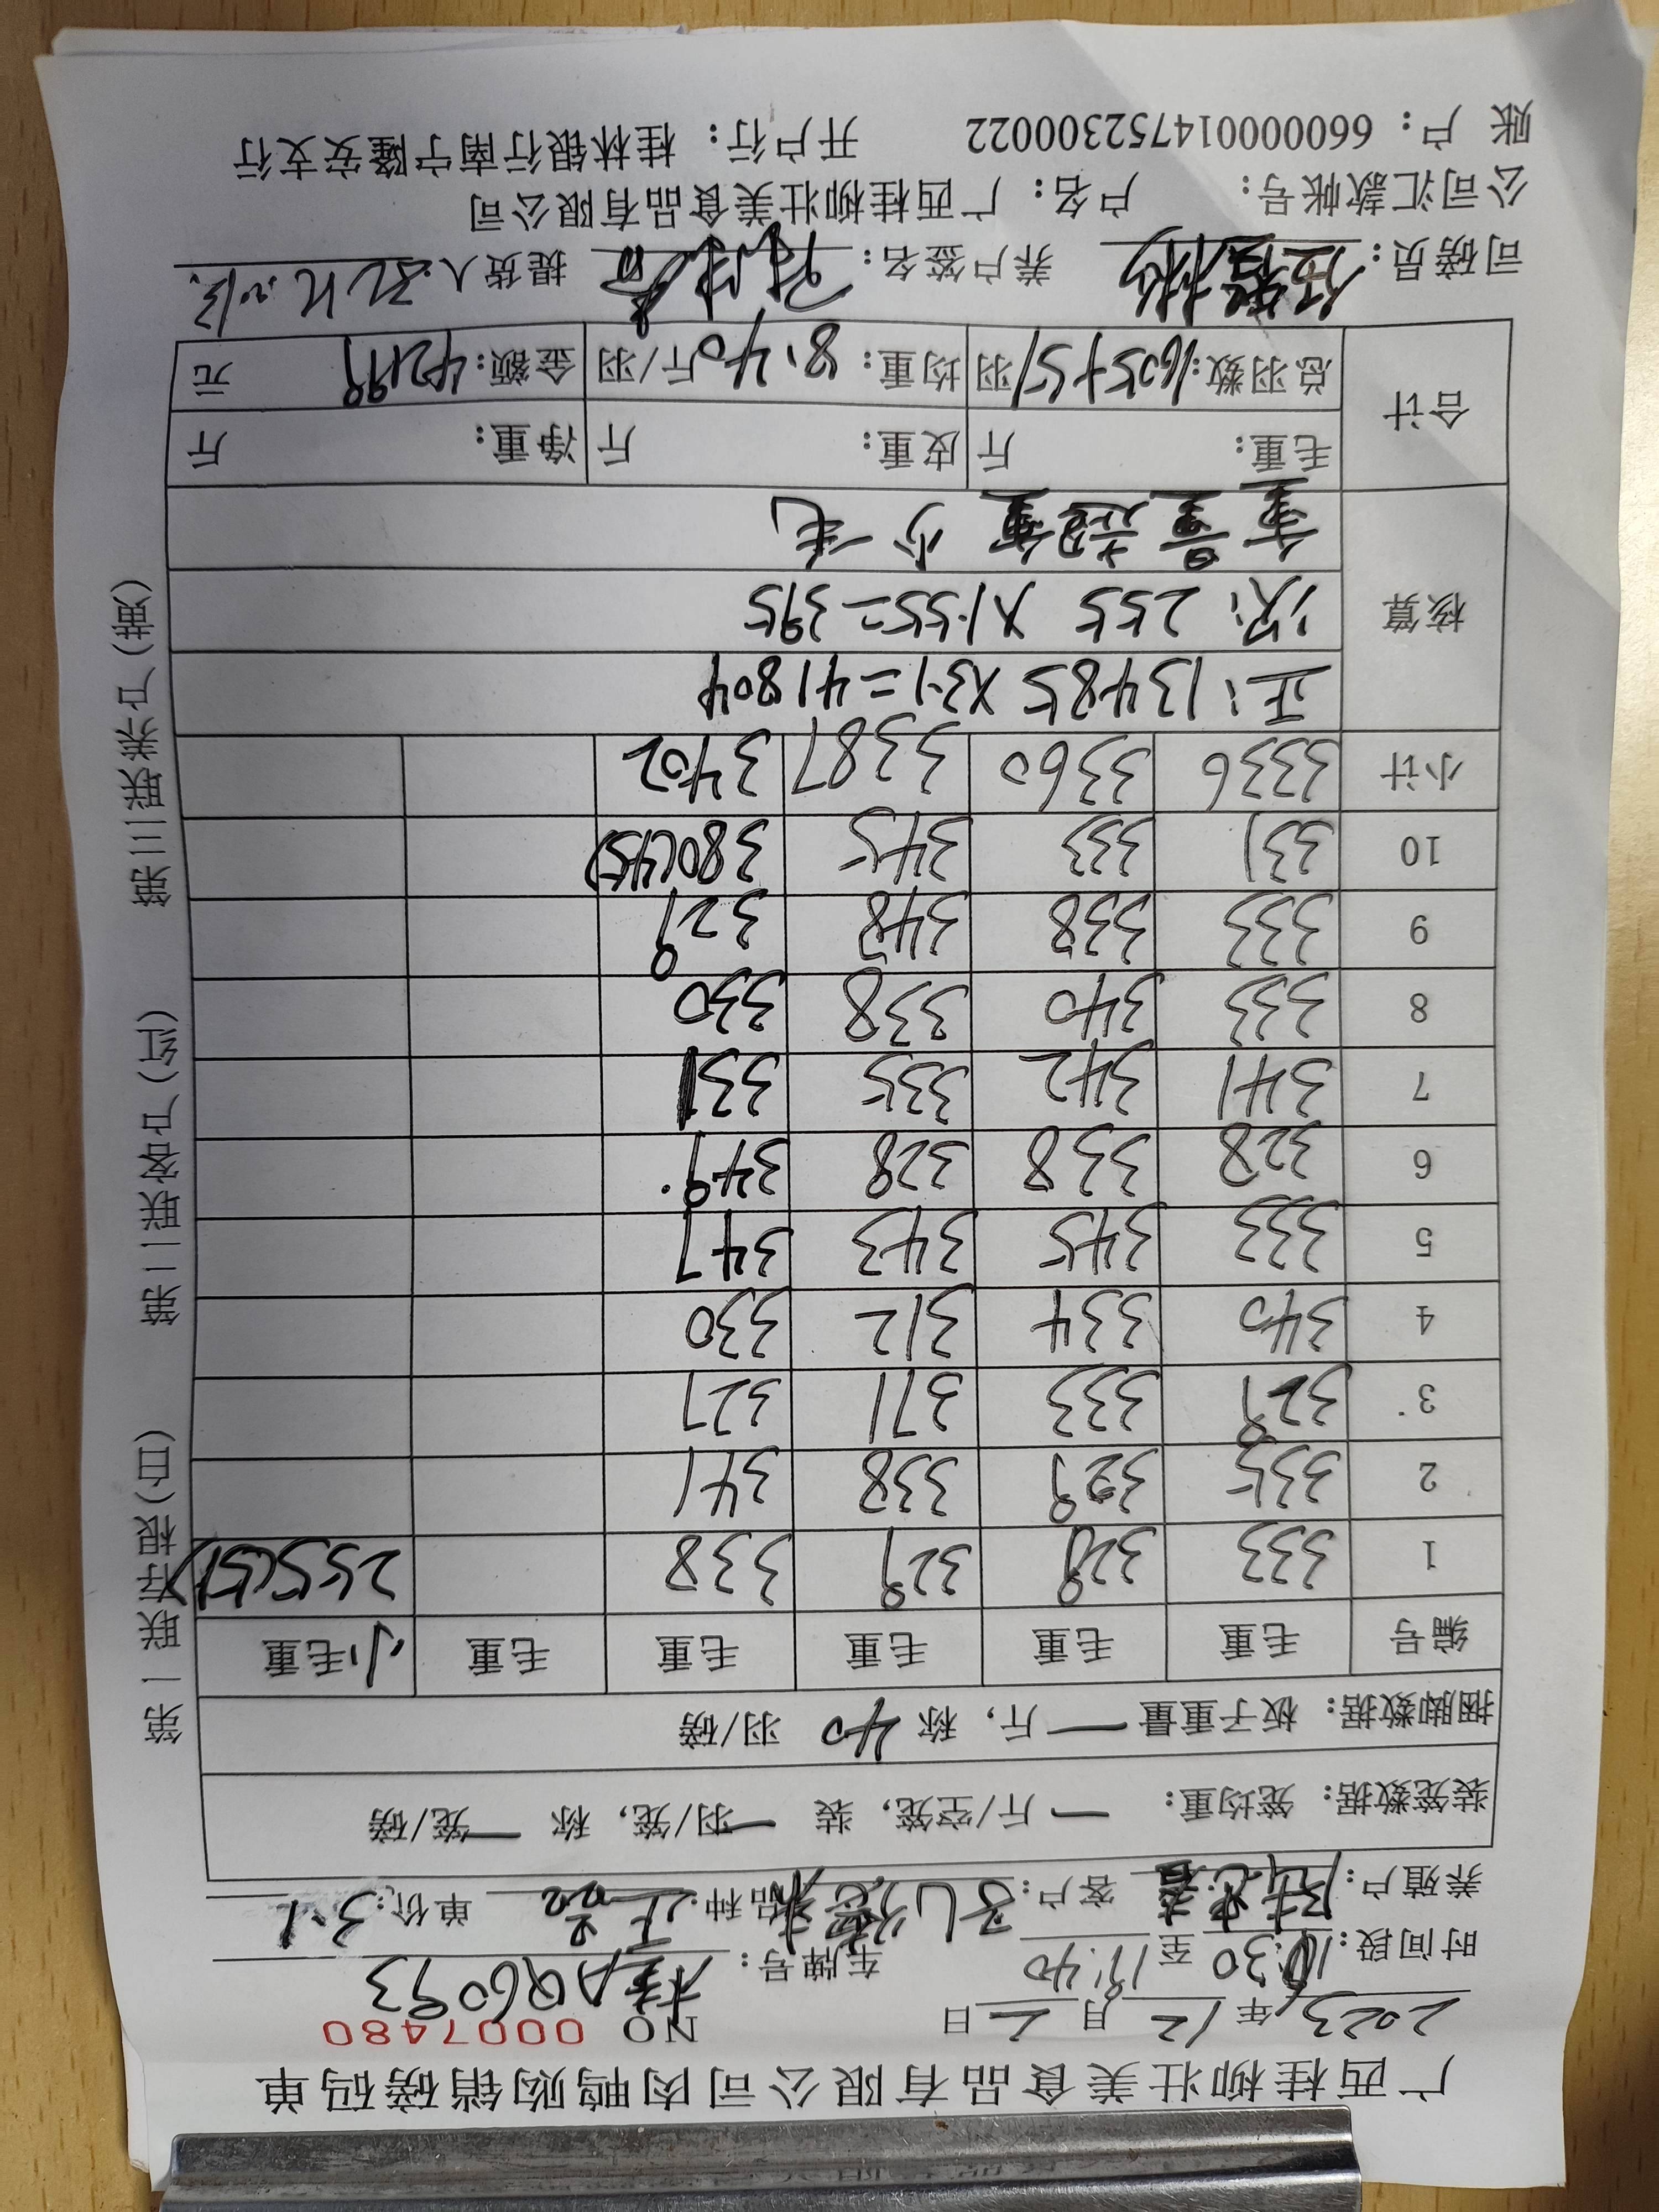 广西桂柳壮美食品有限公司肉鸭购销磅码单
2023年12月2日 NO 0007480
时间段: 16:30至17:40 车牌号: 桂AQ6093
养殖户: 客户: 品种: 单价: 3.1
装笼数据: 笼均重: 一斤/空笼, 装一羽/笼, 称一笼/磅
捆脚数据: 板子重量一斤, 称40羽/磅
编号 毛重 毛重 毛重 毛重 毛重 小毛重
1 333 328 329 338 255(51)
2 335 329 338 341
3 328 333 371 327
4 340 334 312 330
5 333 345 343 347
6 328 338 328 349
7 341 342 335 331
8 333 340 338 330
9 333 338 348 329
10 331 333 345 380(45)
小计 3336 3360 3387 3402
核算 正: 13485×3.1=41804
次: 255×1.55=395
重量超重 少一毛
合计 毛重: 斤 皮重: 斤 净重: 斤
总羽数: 1605+51羽 均重: 8.40斤/羽 金额: 42199元
司磅员: 养户签名: 提货人:
公司汇款帐号: 户名: 广西桂柳壮美食品有限公司
账 户: 660000014752300022 开户行: 桂林银行南宁隆安支行
第一联存根(白) 第二联客户(红) 第三联养户(黄)